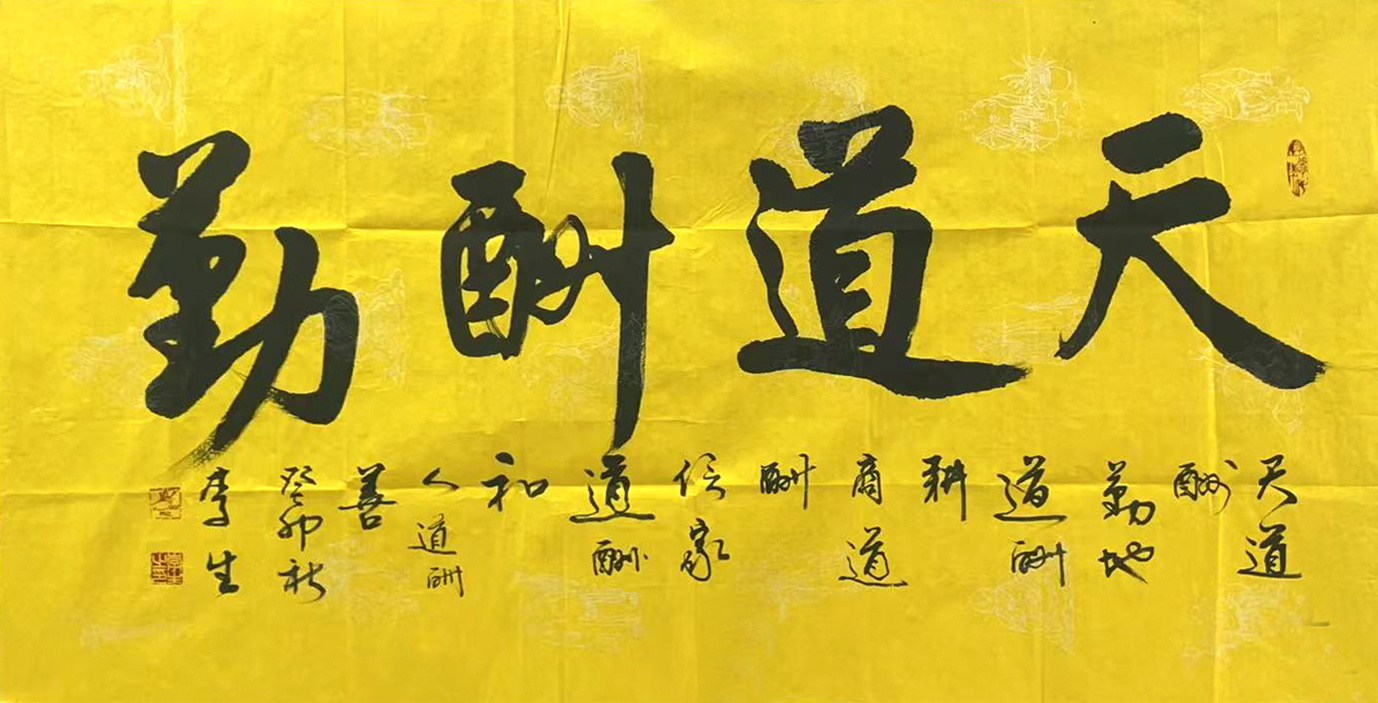 天道酬勤
天道
酬
勤地
道酬
耕
商道
酬
信家
道酬
和
人道酬
善
癸卯秋
李生